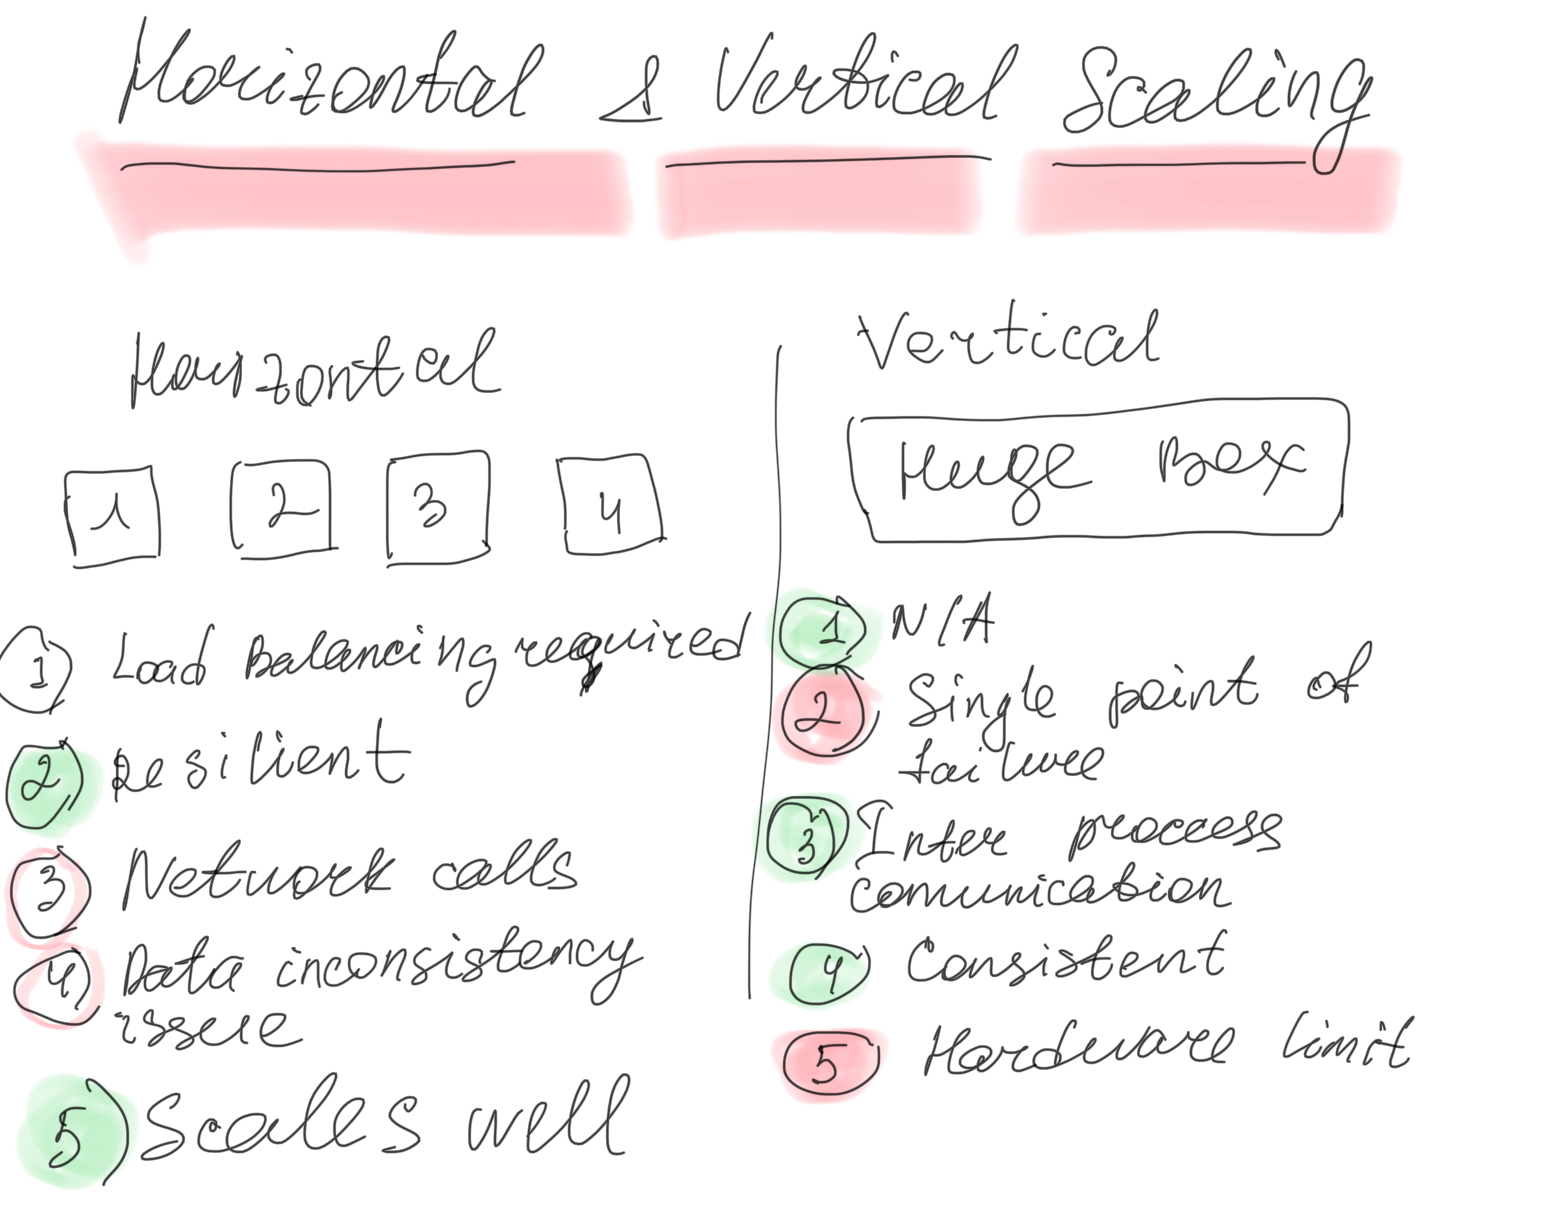 Horizontal & Vertical Scaling
Horizontal
1 2 3 4
1 Load Balancing required
2 Resilient
3 Network calls
4 Data inconsistency
issue
5 Scales well
Vertical
Huge Box
1 N/A
2 Single point of
failure
3 Inter proccess
comunication
4 Consistent
5 Hardware limit